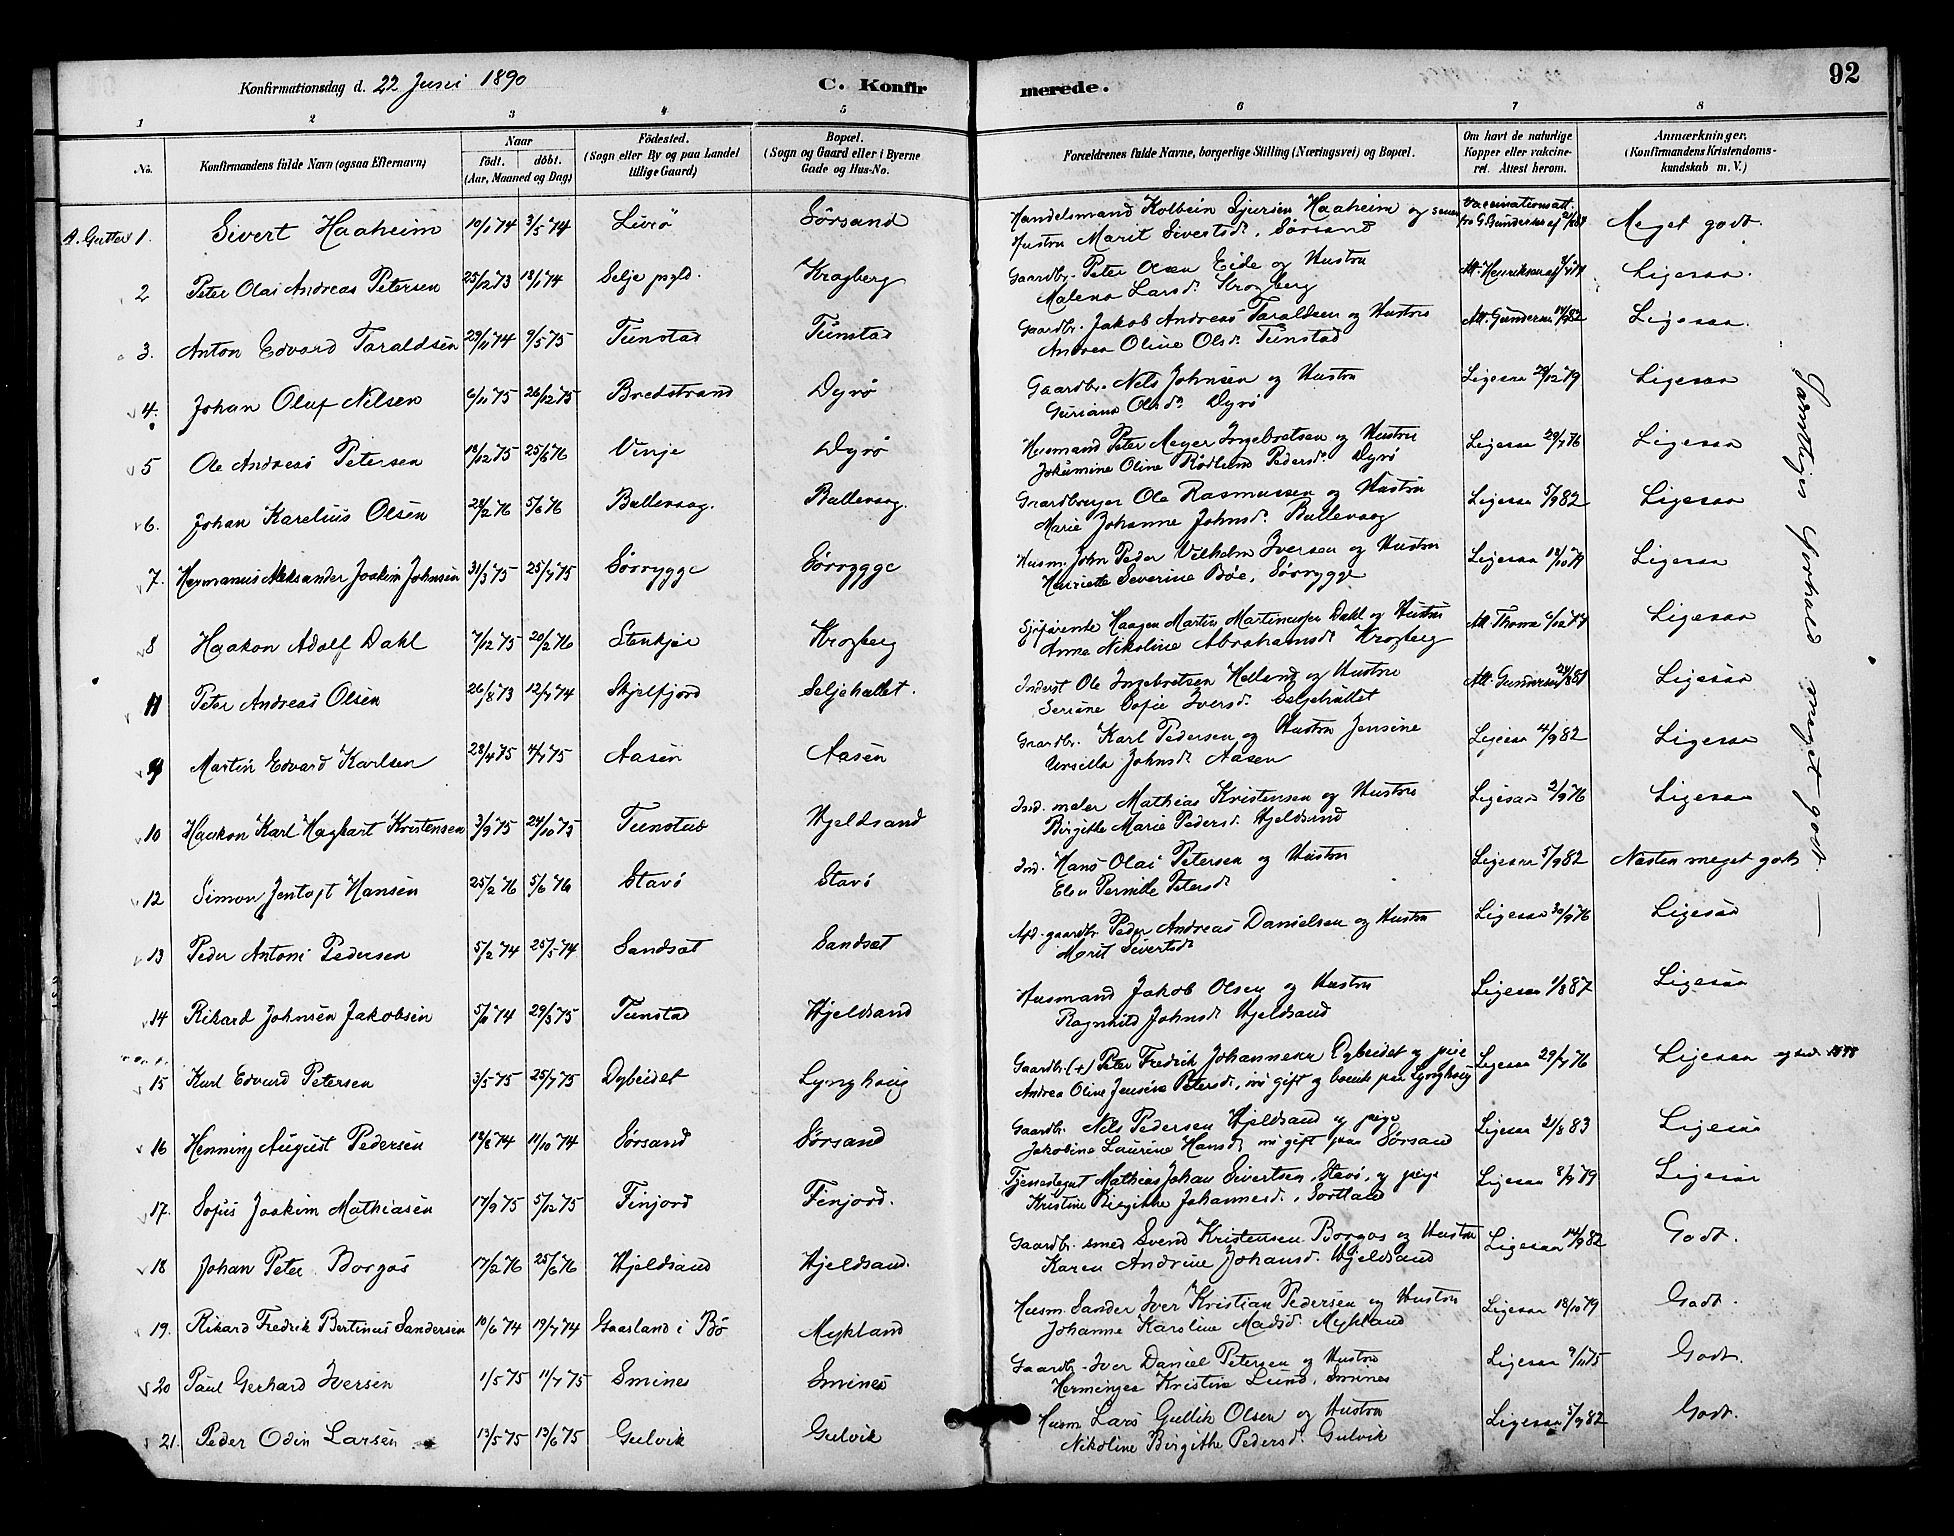 92
Konfirmationsdag d. 22 Juni 1890 C. Konfirmerede.
1 2 3 4 5 6 7 8
No. Konfirmandens fulde Navn (ogsaa Efternavn) Naar født. døbt. (Aar, Maaned og Dag) Fødested. (Sogn eller By og paa Landet tillige Gaard) Bopæl. (Sogn og Gaard eller i Byerne Gade og Hus-No. Forældrenes fulde Navne, borgerlige Stilling (Næringsvei) og Bopæl. Om havt de naturlige Kopper eller vakcineret. Attest herom. Anmærkninger. (Konfirmandens Kristendomskundskab m. V.)
A. Gutter 1. Sivert Haaheim 10/1 74 3/5 74 Sørsand Handelsmand Kolbein Sjursen Haaheim og
Hustru Marit Sivertsd. Sørsand Meget godt.
2 Peter Olai Andreas Petersen 25/12 73 18/1 74 Selje prgld. Krogberg Gaardbr. Peter Olsen Eide og Hustru
Malena Larsd. Krogberg Ligesaa.
3. Anton Edvard Taraldsen 29/11 74 9/5 75 Tunstad Tunstad Gaardbr. Jakob Andreas Taraldsen og Hustru
Andrea Oline Olsd. Tunstad Ligesaa.
4. Johan Oluf Nilsen 6/11 75 26/12 75 Bredstrand Dyrø Gaardbr. Nels Johnsen og Hustru
Guriana Olsd. Dyrø Ligesaa 29/12 79 Ligesaa
5 Ole Andreas Petersen 18/12 75 25/6 76 Vinje Dyrø Husmand Peter Meyer Ingebretsen og Hustru
Jokumine Oline Rødlund Pedersd. Dyrø Ligesaa 29/7 76 Ligesaa
6. Johan Karelius Olsen 28/2 76 5/6 76 Ballevaag. Ballevaag. Gaardbruger Ole Rasmussen og Hustru
Marie Johanne Johnsd. Ballevaag Ligesaa 5/9 82 Ligesaa
7. Hermanus Aleksander Joakim Johnsen 31/3 75 25/7 75 Sørrygge Sørrygge Husm. John Peder Vilhelm Iversen og Hustru
Henriette Severine Bøe, Sørrygge Ligesaa Ligesaa
8 Haakon Adolf Dahl 7/12 75 20/2 76 Stenkjær Krogberg Sjøfarende Haagen Martin Martinusen Dahl og Hustru
Anne Nikoline Abrahamsd. Krogberg Ligesaa
11 Peter Andreas Olsen 26/8 73 12/7 74 Skjelfjord Seljehullet. Inderst Ole Ingebretsen Helland og Hustru
Seriane Sofie Iversd. Seljehullet Ligesaa
9 Martin Edvard Karlsen 28/4 75 4/7 75 Aasen Aasen Gaardbr. Karl Pedersen og Hustru Jensine
Ursilla Johnsd. Aasen Ligesaa 4/9 82 Ligesaa
10 Haakon Karl Hagbart Kristensen 3/9 75 24/10 75 Tunstad Hjeldsand Ind. maler Mathias Kristensen og Hustru
Birgitte Marie Pedersd. Hjeldsand Ligesaa 2/9 76 Ligesaa
12 Simon Jentoft Hansen 25/2 76 5/6 76 Stavø Stavø Ind. Hans Olai Petersen og Hustru
Elen Pernille Petersd. Ligesaa 5/9 82 Næsten meget godt
13 Peder Antoni Pedersen 5/2 74 25/5 74 Sandsæt Sandsæt gaardbr. Peder Andreas Danielsen og Hustru
Marit Sivertsd. Ligesaa 30/9 76 Ligesaa
14 Rikard Johnsen Jakobsen 5/11 74 29/3 75 Tunstad Hjeldsand Husmand Jakob Olsen og Hustru
Ragnhild Johnsd. Hjeldsand Ligesaa 1/8 87 Ligesaa
15 Karl Edvard Petersen 3/5 75 25/7 75 Dybeidet Lynghaug Gaardbr. (+) Peter Fredrik Johannesen Dybeidet og pige
Andrea Oline Jensine Petersd., nu gift og boende paa Lynghaug Ligesaa 29/7 76 Ligesaa
16 Henning August Pedersen 18/8 74 11/10 74 Sørsand Sørsand Gaardbr. Nels Pedersen Hjeldsand og pige
Jakobine Laurine Hansd. nu gift paa Sørsand Ligesaa 21/8 83 Ligesaa
17. Sofus Joakim Mathiasen 17/9 75 5/12 75 Finjord Finjord. Tjenestegut Mathias Johan Sivertsen, Stavø, og pige
Kristine Birgitte Johannesd., Sortland Ligesaa 8/7 79 Ligesaa
18 Johan Peter Borgos 17/2 76 25/6 76 Hjeldsand Hjeldsand. Gaardbr. smed Svend Kristensen Borgos og Hustru
Karen Andrine Johansd. Hjeldsand Ligesaa 14/9 82 Godt.
19. Rikard Fredrik Bertinus Sandersen 10/6 74 19/7 74 Gaasland i Bø Mykland Husm. Sander Iver Kristian Pedersen og Hustru
Johanne Karoline Madsd. Mykland Ligesaa 18/10 79 Godt.
20 Paul Gerhard Iversen 1/5 75 11/7 75 Smines Smines Gaardbr. Iver Daniel Petersen og Hustru
Herminges Kristine Lund, Smines Ligesaa 9/11 75 Godt.
21. Peder Odin Larsen 13/5 75 13/6 75 Gulvik Gulvik Husm. Lars Gullik Olsen og Hustru
Nikoline Birgithe Pedersd. Gulvik Ligesaa 5/9 82 Godt.
Samtlige forhold meget godt. —